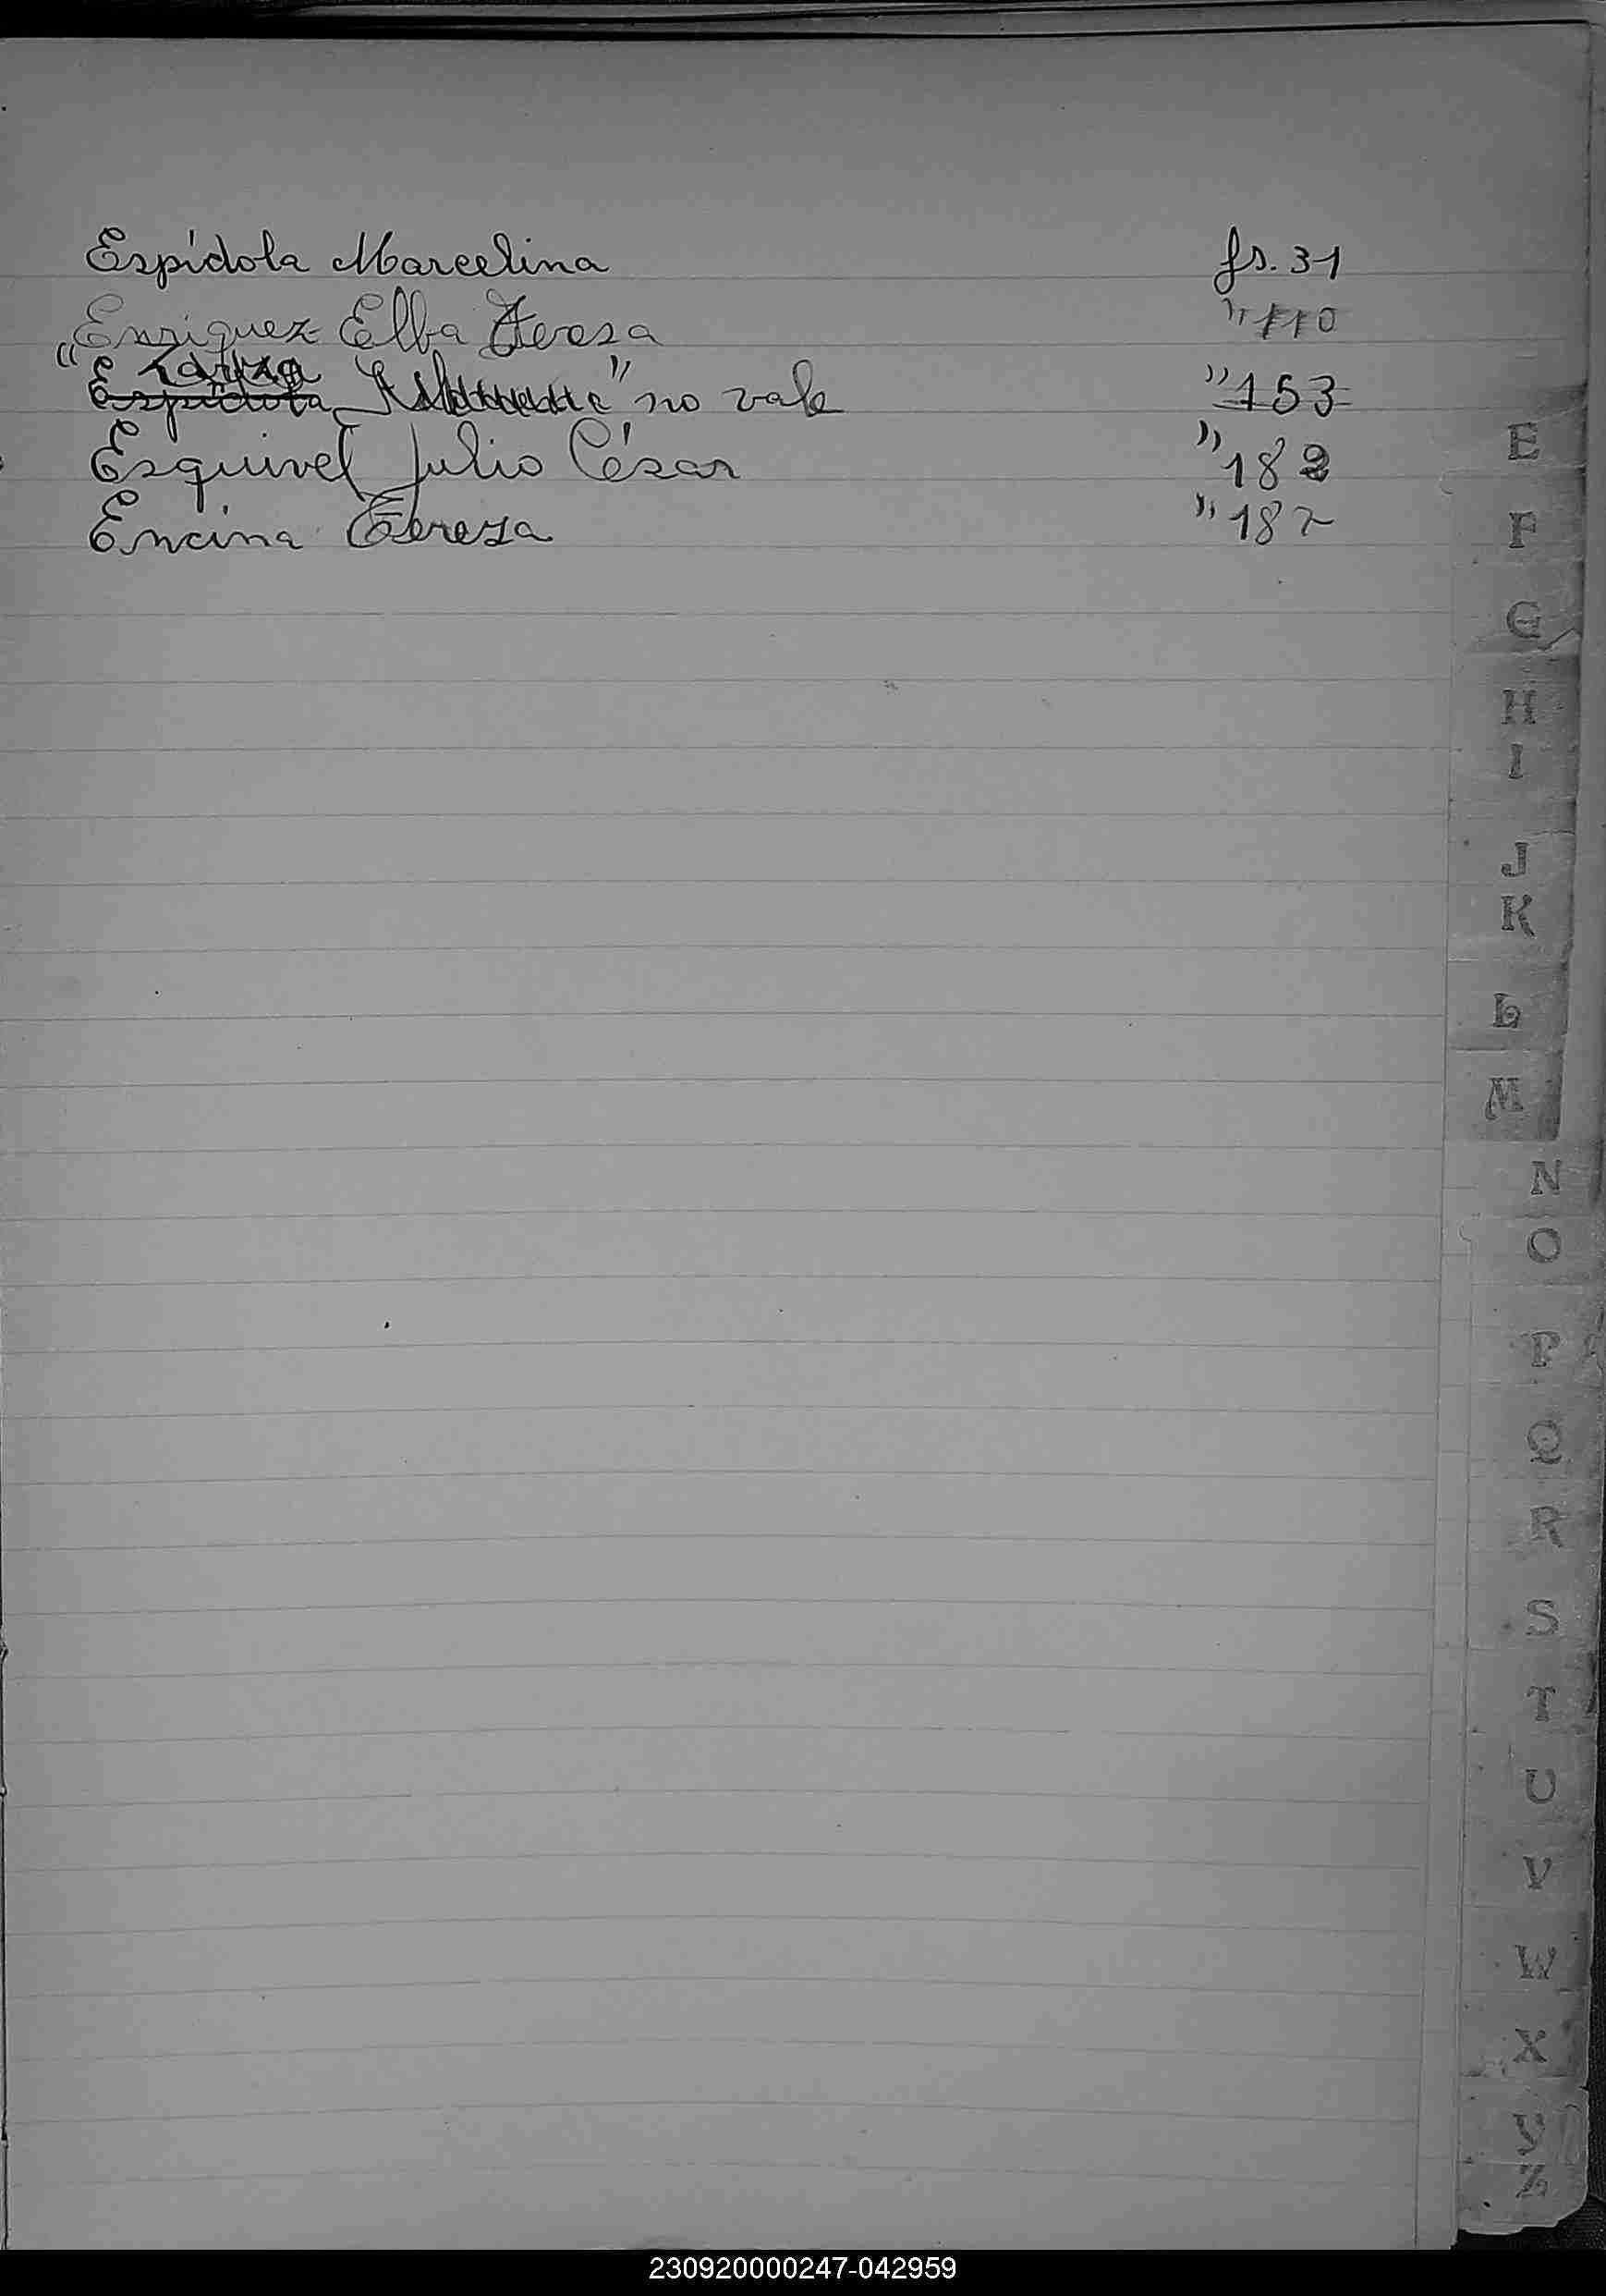 Espídola Marcelina fs. 31
Enriquez Elba Teresa " 110
" Espídola " no vale " 153
Esquivel Julio César " 182
Encina Tereza " 187
E
F
G
H
I
J
K
L
M
N
O
P
Q
R
S
T
U
V
W
X
Y
Z
230920000247-042959